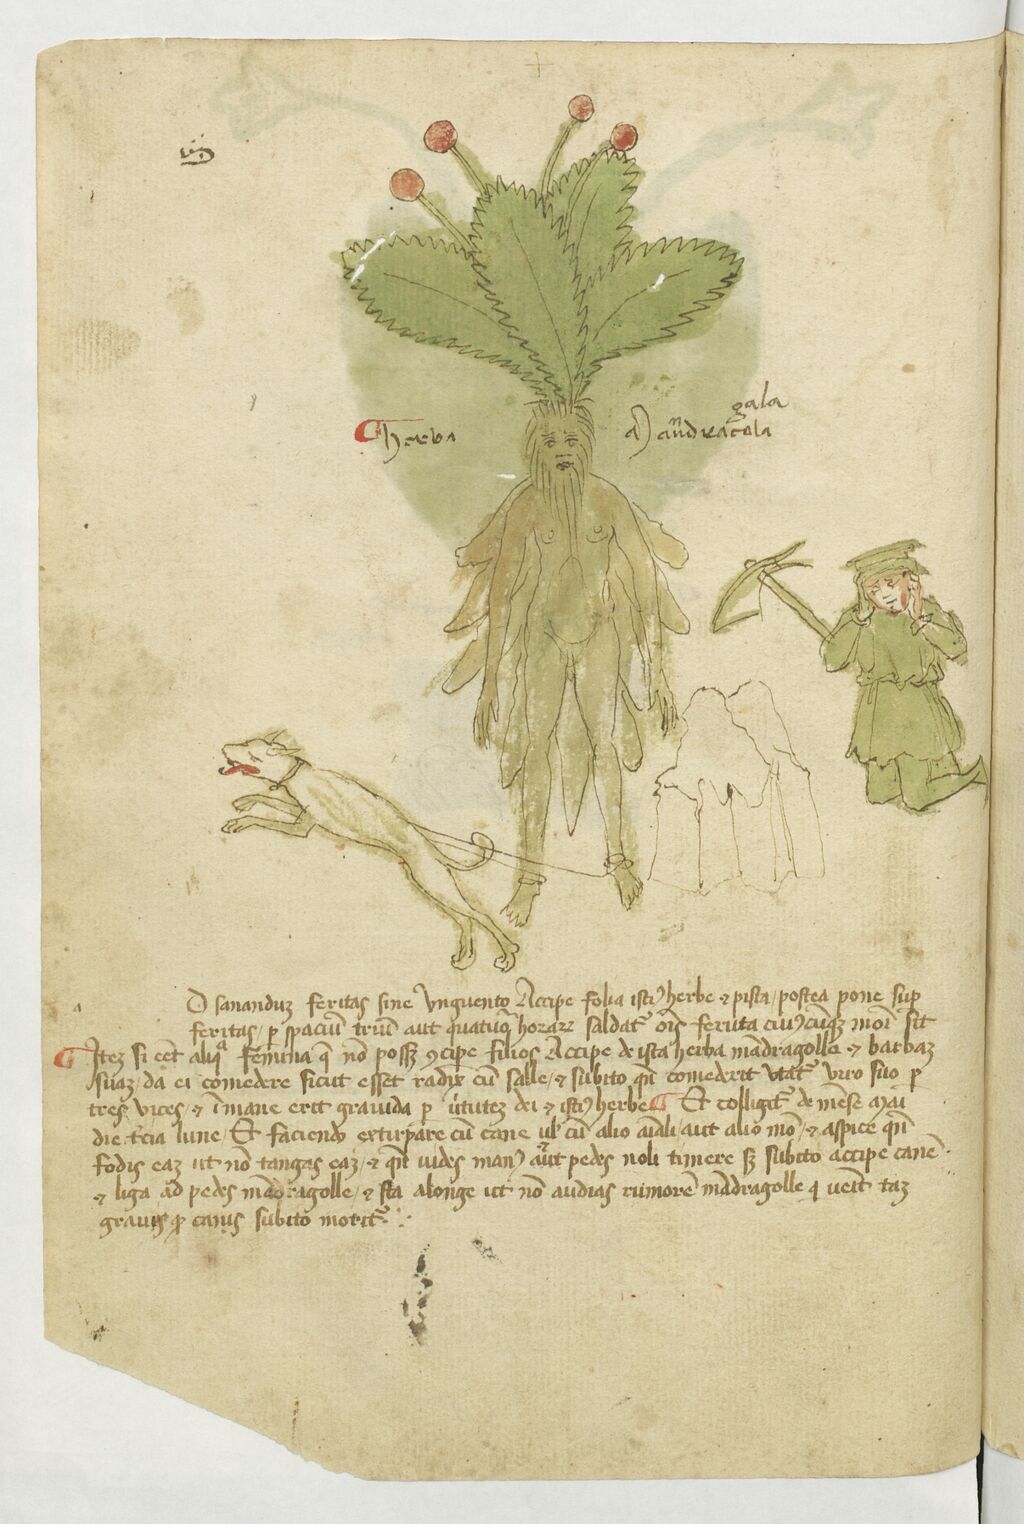 herba
mandragola
gala
D sananduz feritas sine Unguento Accipe folia isti9 herbe & pista, postea pone sup
feritas, p spaciũ triũ aut quatuor horarz saldat~ õis feruta cui9cũqz moĩ sit
Itez si cẽt aliqᵃ femina q̃ nõ possz ɔcipe filios Accipe de ista herba mãdragolle & barbaz
suaz, da ei comedere sicut esset radix cũ salle, & subito qñ comederit utat~ uiro suo p
tres vices, & ĩmane erit grauida p uĩtutez dei & isti9 herbe Et colligit~ de mẽse Mai
die tcia lune, Et faciendo extirpare cũ cane ul' cũ alio aĩali, aut alio mõ, & aspice qñ
fodis eaz ut nõ tangas eaz, & qñ uides man9 aut pedes noli timere sz subito accipe canẽ
& liga ad pedes mãdragolle, & sta alonge ut nõ audias rumorẽ mãdragolle q ueit taz
grauis ꝙ canis subito morit~